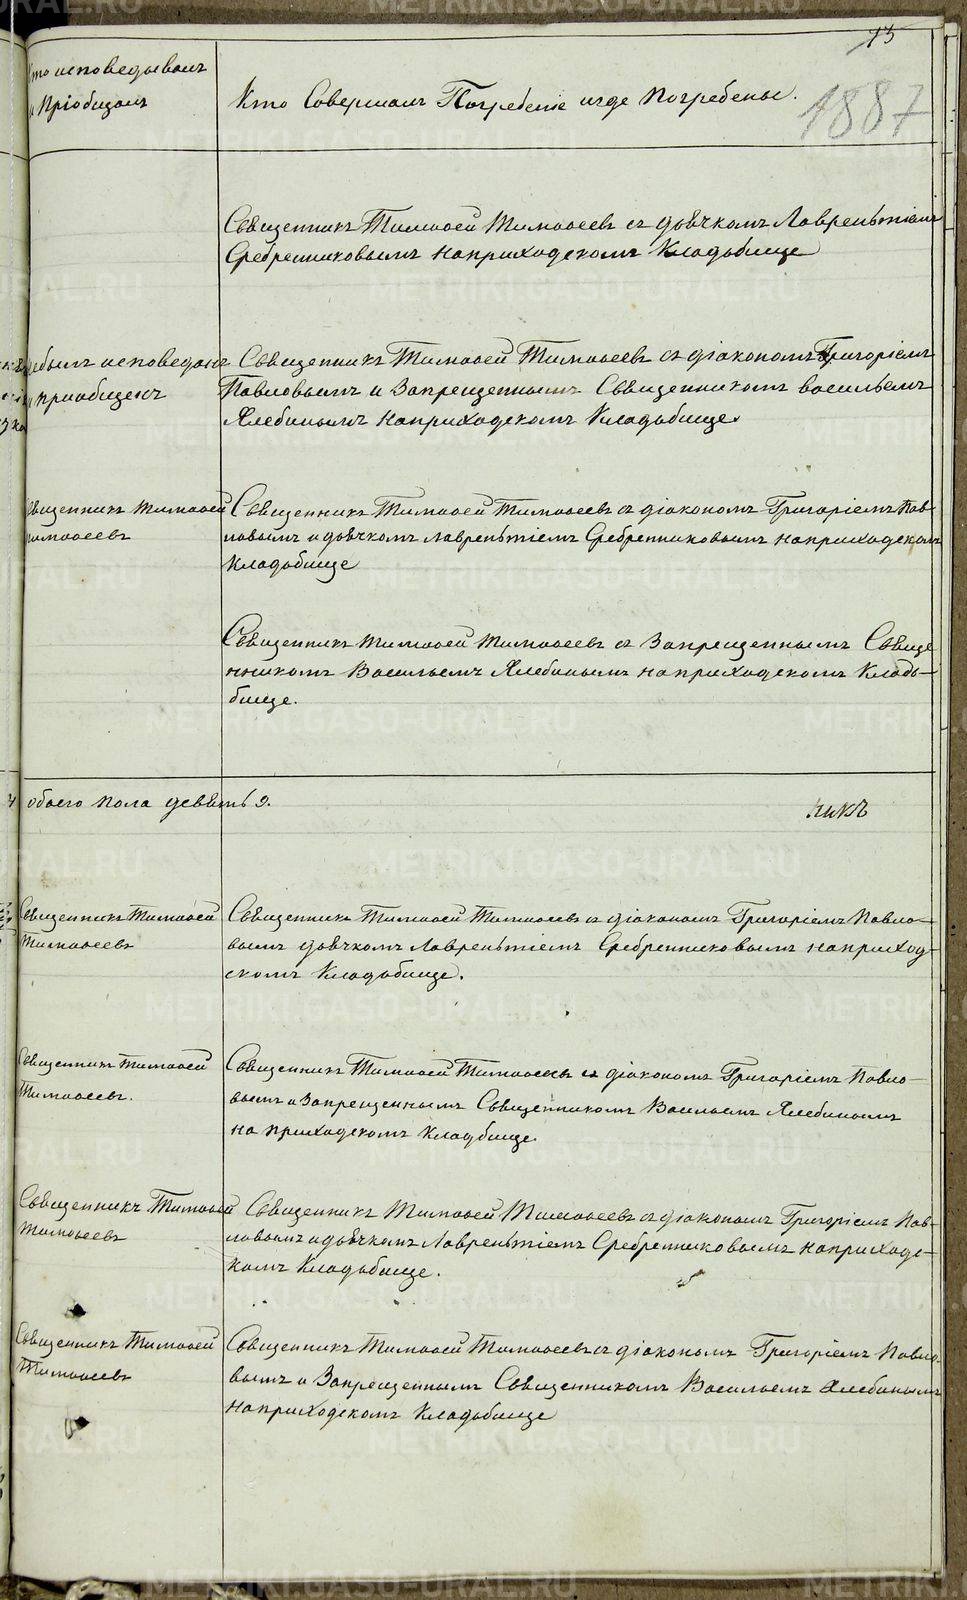 13
1887
Кто исповедывалъ
и Пріобщалъ
Кто Совершалъ Погребеніе и где Погребены.
Священникъ Тимоѳей Тимоѳеевъ съ дьячкомъ Лаврентіемъ
Сребренниковымъ на приходскомъ Кладьбище
небылъ исповеданъ
и приобщенъ
Священникъ Тимоѳей Тимоѳеевъ съ діакономъ Григоріемъ
Павловымъ и Запрещеннымъ Священникомъ васильемъ
Хлебинымъ на приходскомъ Кладьбище.
Священникъ Тимоѳей
Тимоѳеевъ
Священникъ Тимоѳей Тимоѳеевъ съ діакономъ Григоріемъ Пав-
ловымъ и дьячкомъ лаврентіемъ Сребренниковымъ на приходскомъ
Кладьбище
Священникъ Тимоѳей Тимоѳеевъ съ Запрещеннымъ Свяще
нникомъ Васильемъ Хлебинымъ на приходскомъ Кладь-
бище.
обоего пола девять 9.
Священникъ Тимоѳей
Тимоѳеевъ
Священникъ Тимоѳей Тимоѳеевъ съ діакономъ Григоріемъ Павло-
вымъ дьячкомъ Лаврентіемъ Сребренниковымъ на приход-
скомъ Кладьбище.
Священникъ Тимоѳей
Тимоѳеевъ.
Священникъ Тимоѳей Тимоѳеевъ съ діакономъ Григоріемъ Павло-
вымъ и Запрещеннымъ Священникомъ Васильемъ Хлебинымъ
на приходскомъ Кладбище.
Священникъ Тимоѳей
Тимоѳеевъ
Священникъ Тимоѳей Тимоѳеевъ съ діакономъ Григоріемъ Пав-
ловымъ и дьячкомъ Лаврентіемъ Сребренниковымъ на приходс-
комъ Кладьбище.
Священникъ Тимоѳей
Тимоѳеевъ
Священникъ Тимоѳей Тимоѳеевъ съ діакономъ Григоріемъ Павло-
вымъ и Запрещеннымъ Священникомъ Васильемъ Хлебинымъ
на приходскомъ Кладьбище
METRIKI.GASO-URAL.RU